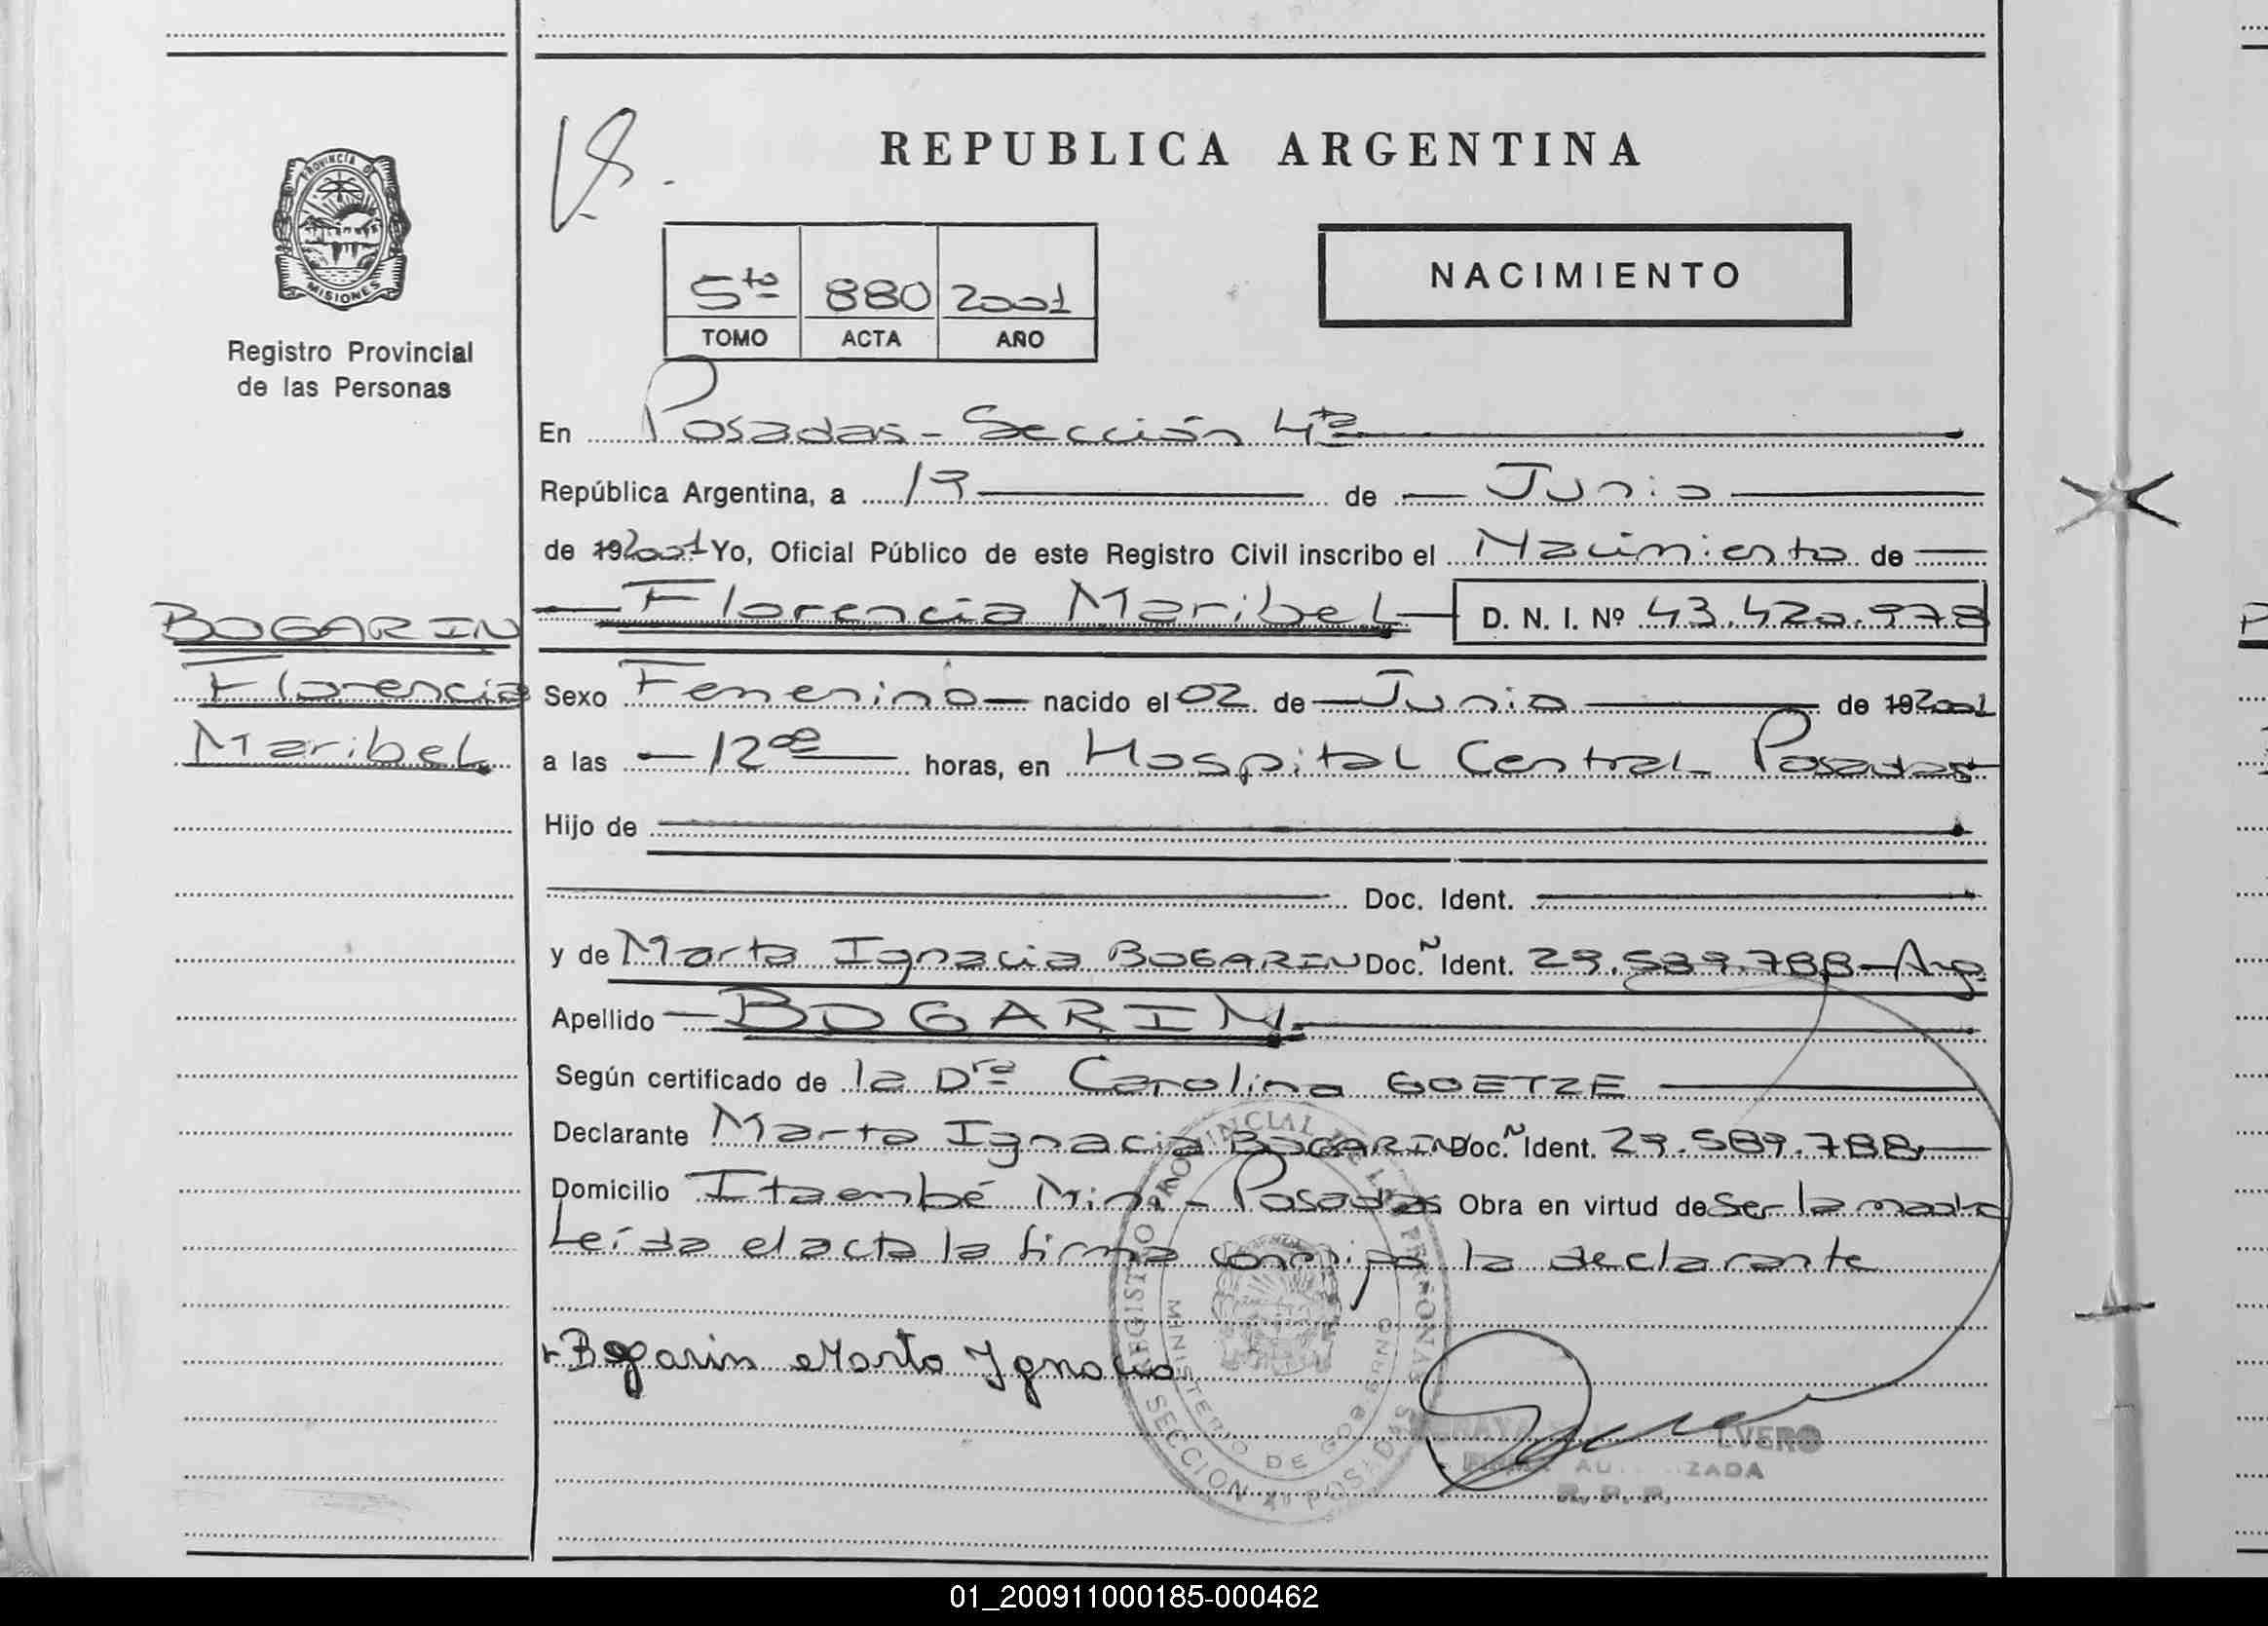 REPUBLICA ARGENTINA
PROVINCIA DE
MISIONES
Registro Provincial
de las Personas
5to 880 2001
TOMO ACTA AÑO
NACIMIENTO
En Posadas - Sección 4ta
República Argentina, a 19 de Junio
de 192001 Yo, Oficial Público de este Registro Civil inscribo el Nacimiento de
Florencia Maribel D. N. I. Nº 43.420.978
BOGARIN
Florencia
Maribel
Sexo Femenino nacido el 02 de Junio de 192001
a las 12 00 horas, en Hospital Central Posadas
Hijo de
Doc. Ident.
y de Marta Ignacia BOGARIN Doc. Ident. 29.589.788 - Arg
Apellido BOGARIN
Según certificado de la Dra Carolina GOETZE
Declarante Marta Ignacia BOGARIN Doc. Ident. 29.589.788
Domicilio Itaembé Miní - Posadas Obra en virtud de Ser la madre
Leída el acta la firma conmigo la declarante
Bogarin Marta Ignacia
REGISTRO PROVINCIAL DE LAS PERSONAS
MINISTERIO DE GOBIERNO
SECCION 4ta POSADAS
R. P. P.
01_200911000185-000462